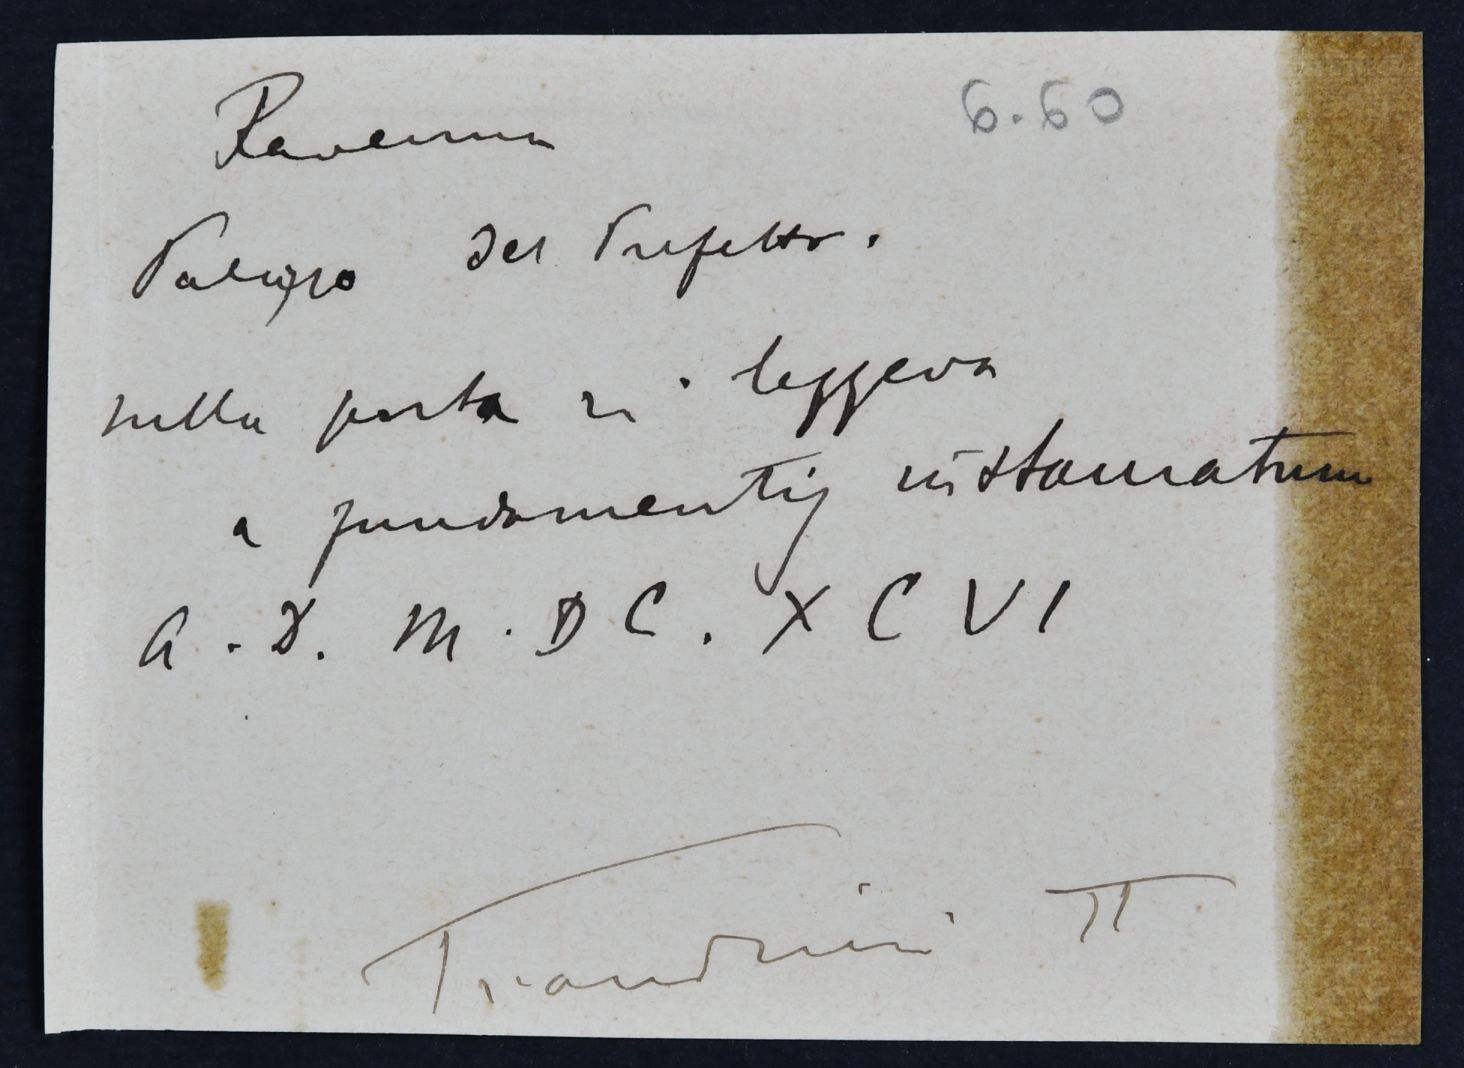 Ravenna
6.60
Palazzo del Prefetto.
nella porta si leggeva
a fundamentis instauratum
A. D. M. DC. XCVI
II